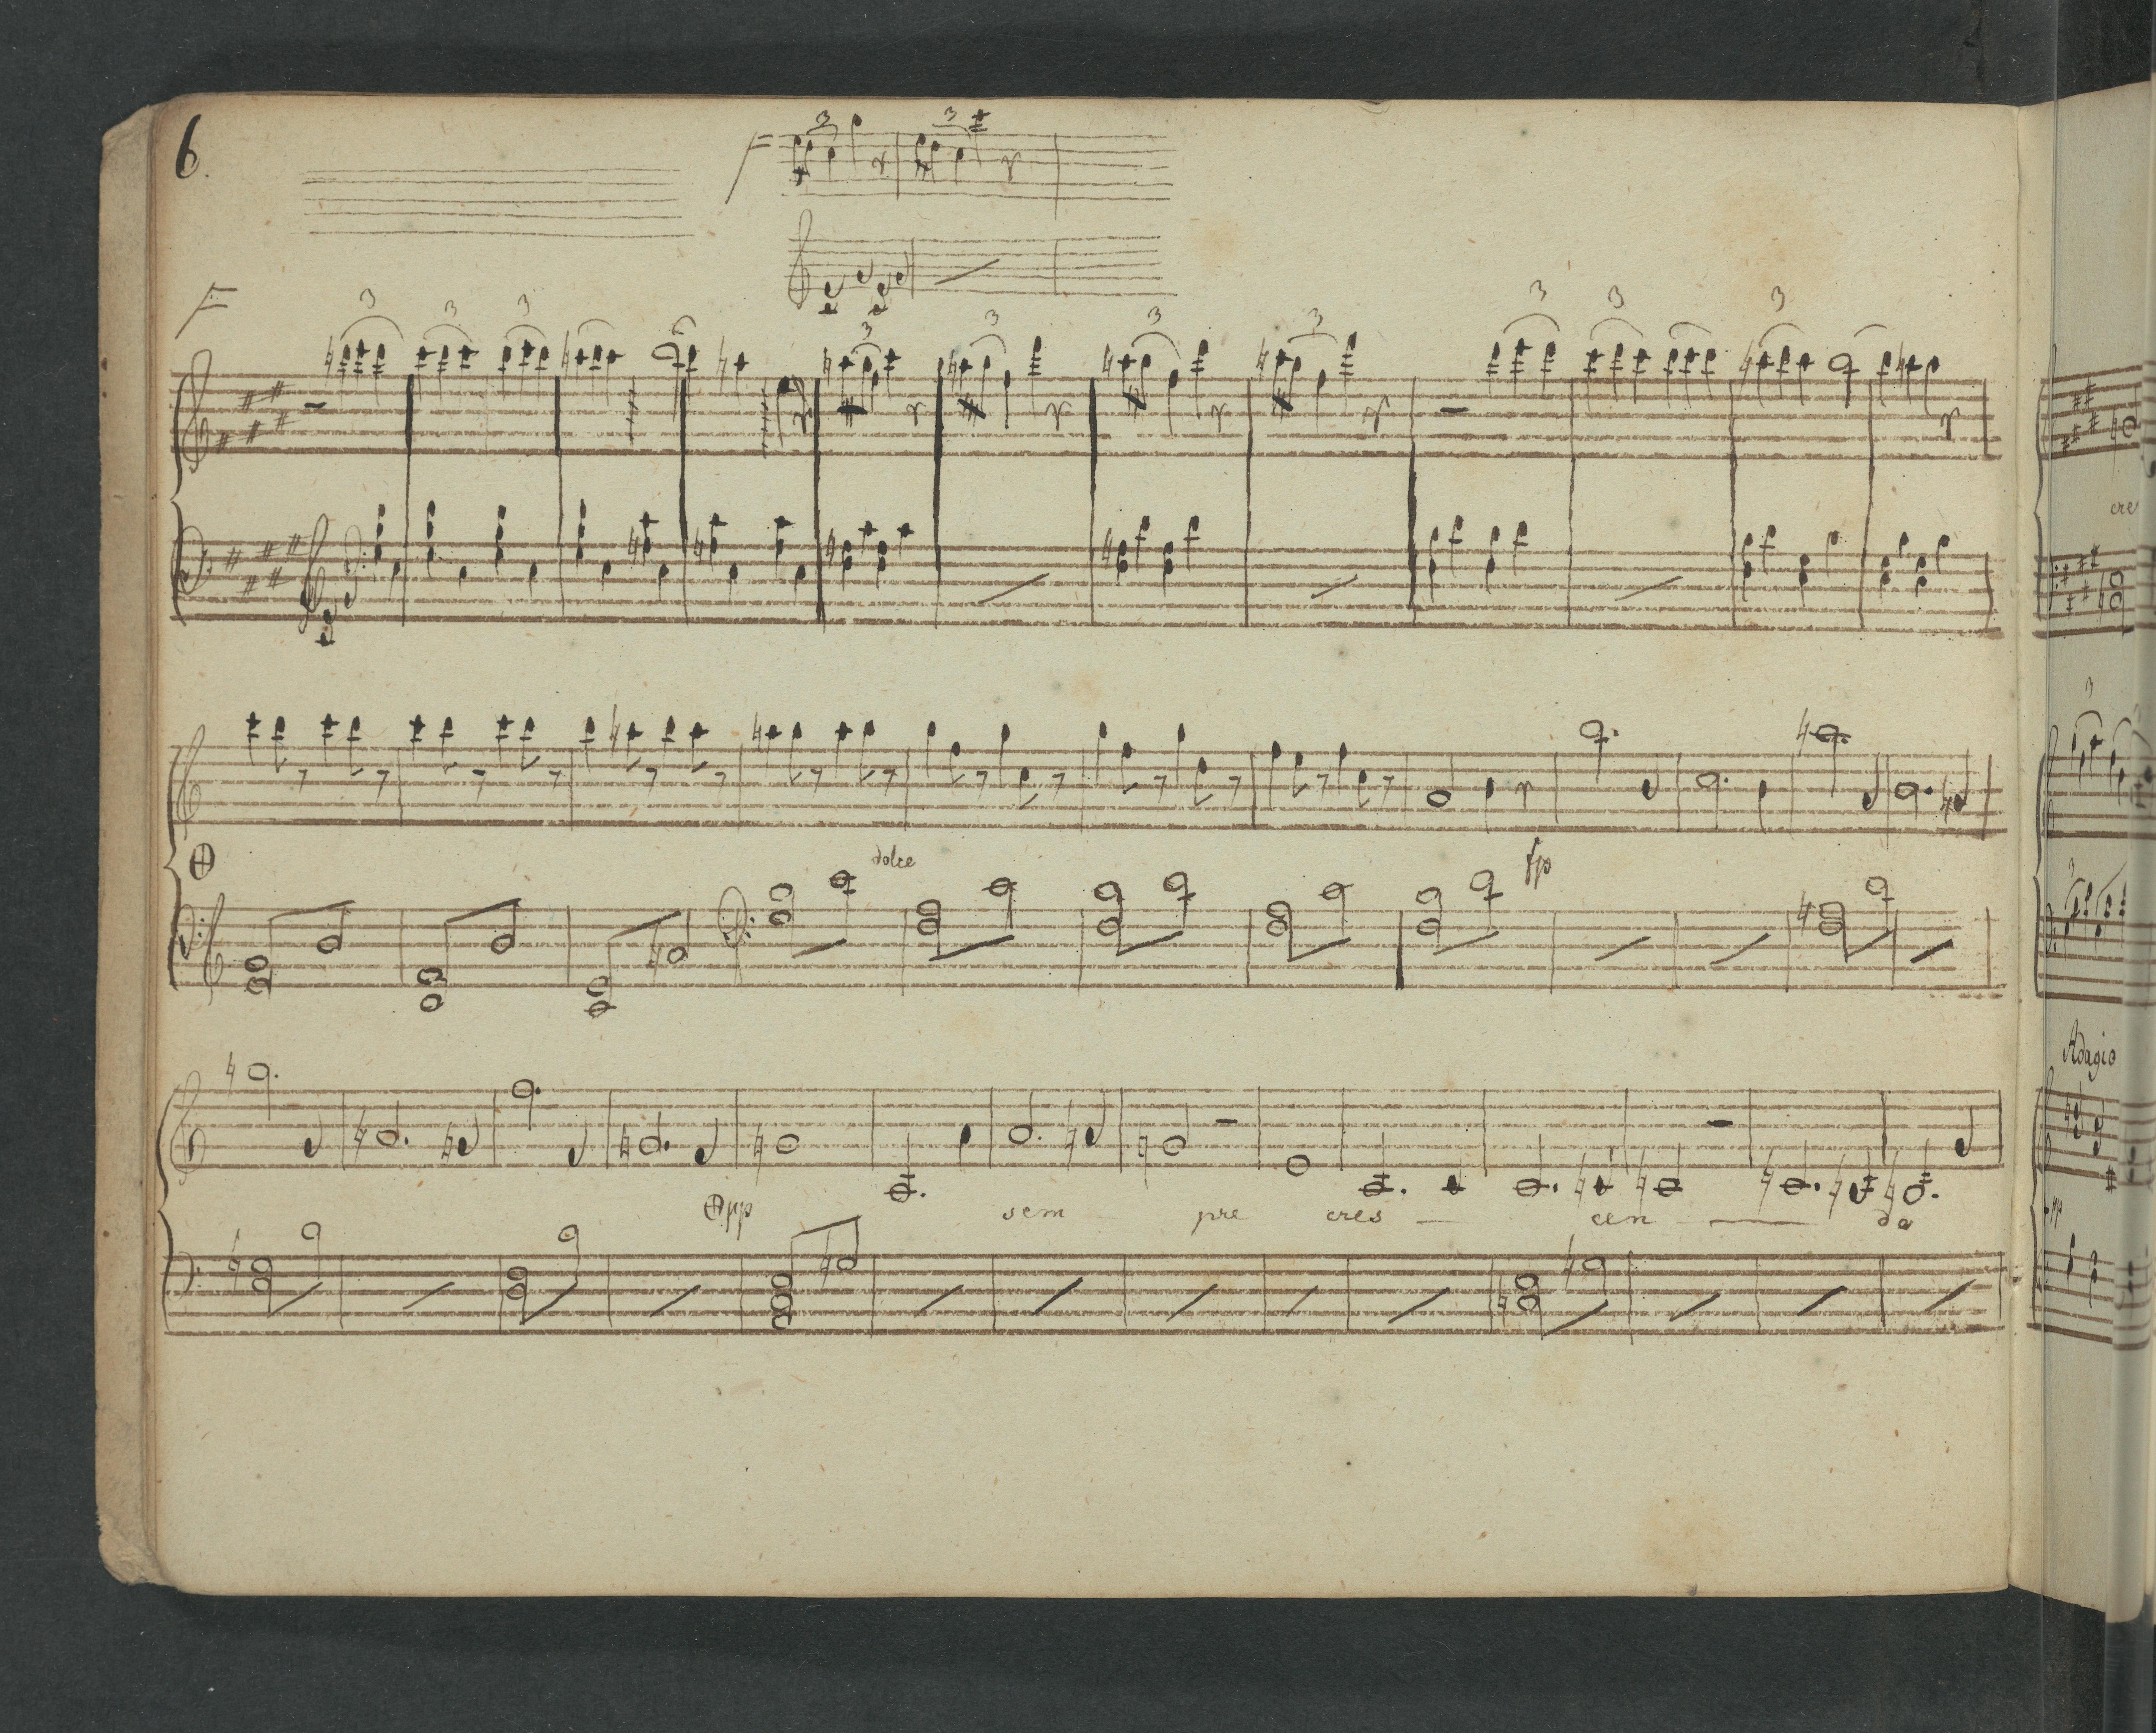 6.
3 3
F
F
3 3 3 3 3 3 3 3 3 3
cres
dolce
fp
3
3
Adagio
pp sem pre cres cen do
pp